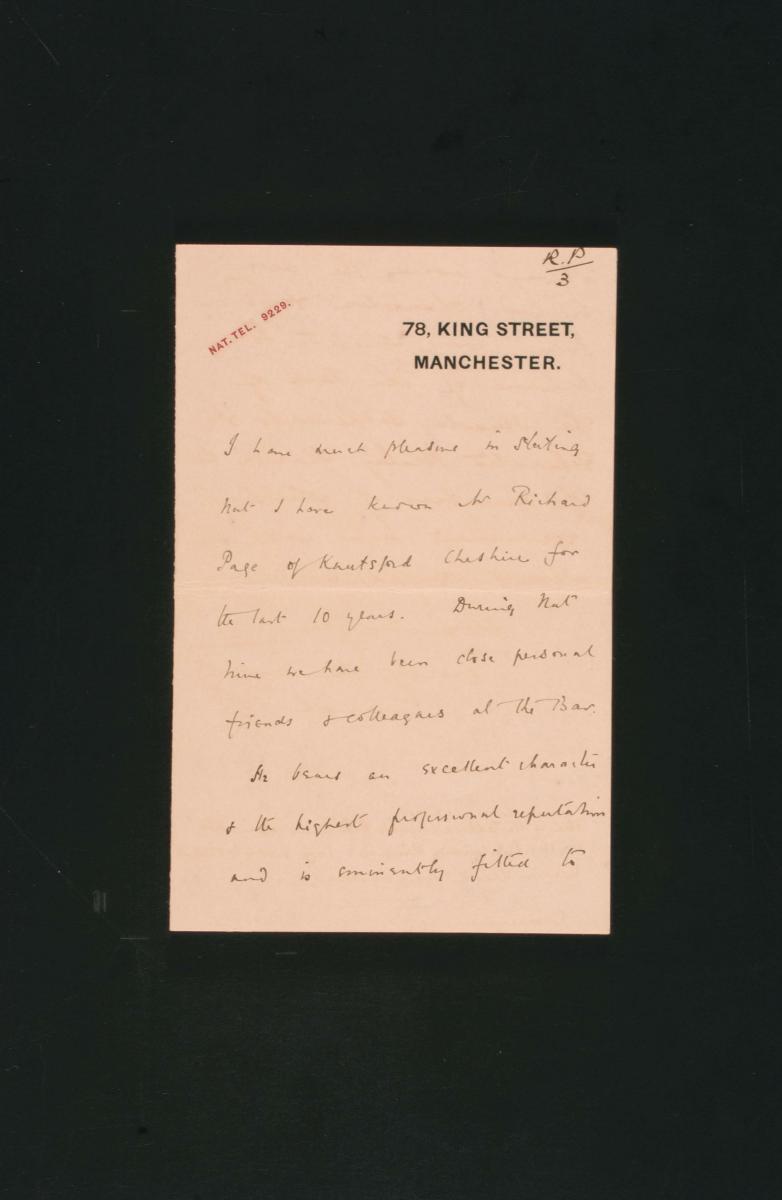 R.P
3
NAT. TEL. 9229.
78, KING STREET,
MANCHESTER.
I have much pleasure in stating
that I have known Mr Richard
Page of Knutsford Cheshire for
the last 10 years. During that
time we have been close personal
friends & colleagues at the Bar.
He bears an excellent character
& the highest professional reputation
and is eminently fitted to